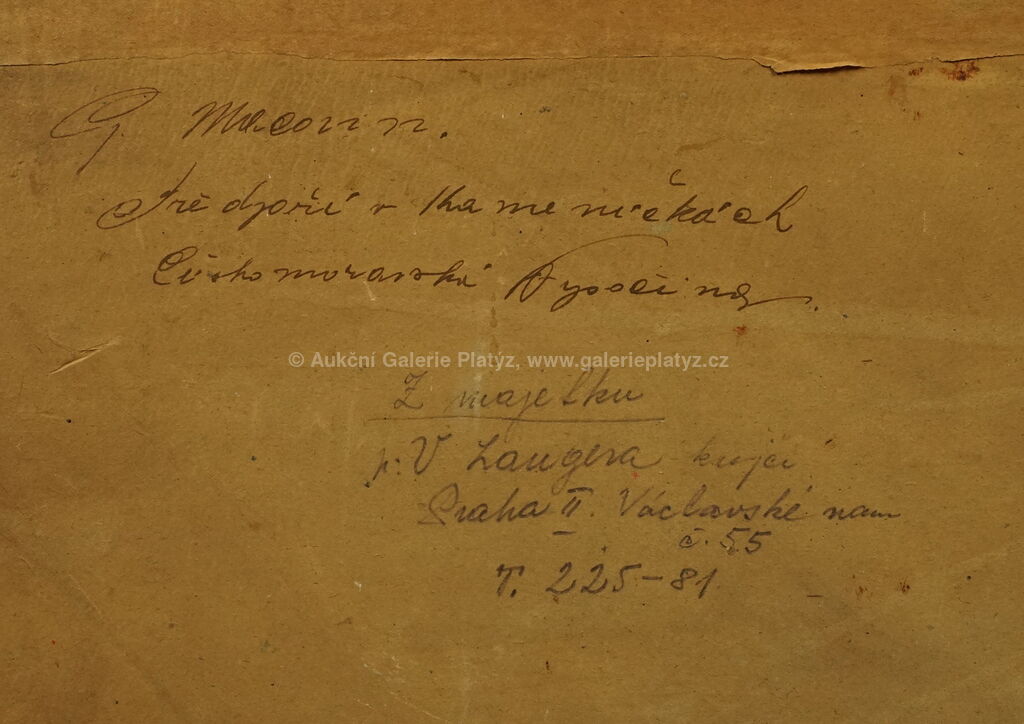 G. Macoun.
Předjaří v Kameničkách
Českomoravská Vysočina.
© Aukční Galerie Platýz, www.galerieplatyz.cz
Z majetku
p: V Langera krejčí
Praha II. Václavské nam
č. 55
T. 225-81